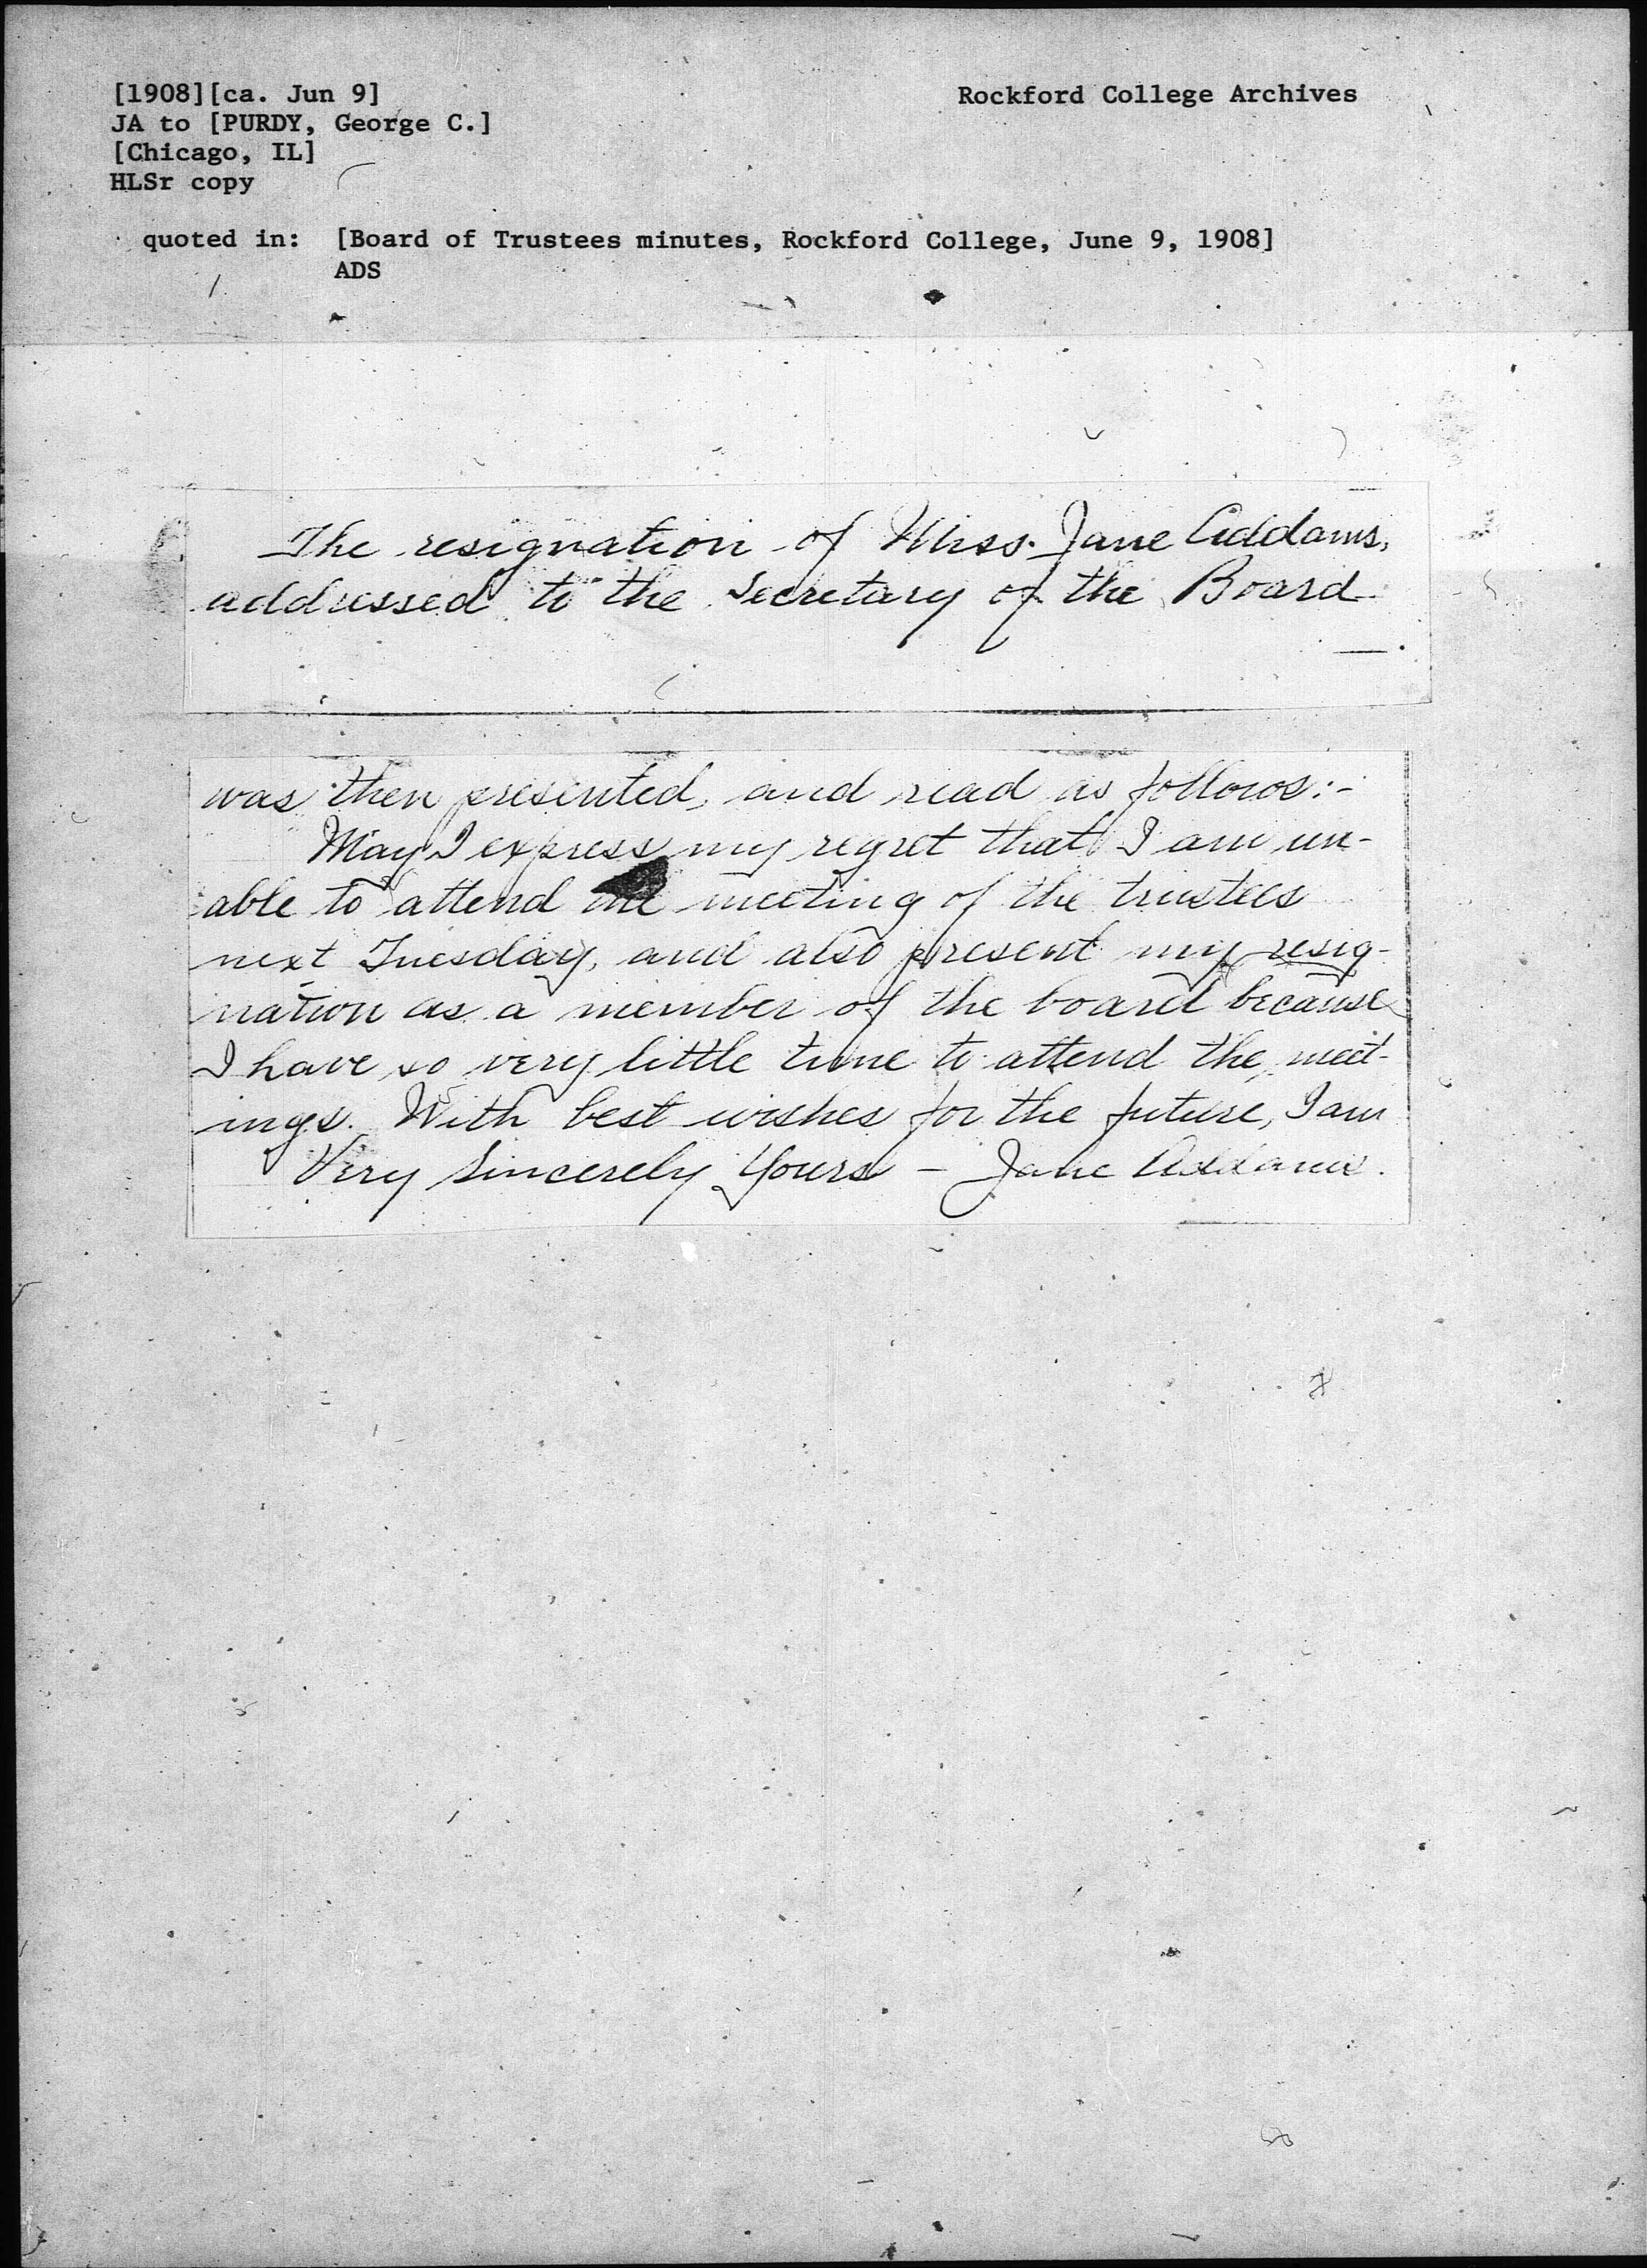 [1908][ca. Jun 9]
Rockford College Archives
JA to [PURDY, George C.]
[Chicago, IL]
HLSr copy
quoted in: [Board of Trustees minutes, Rockford College, June 9, 1908]
ADS
The resignation of Miss. Jane Addams,
addressed to the Secretary of the Board
was then presented, and read as follows:-
May I express my regret that I am un-
able to attend the meeting of the trustees
next Tuesday, and also present my resig-
nation as a member of the board because
I have so very little time to attend the meet-
ings. With best wishes for the future, I am
Very Sincerely Yours - Jane Addams.